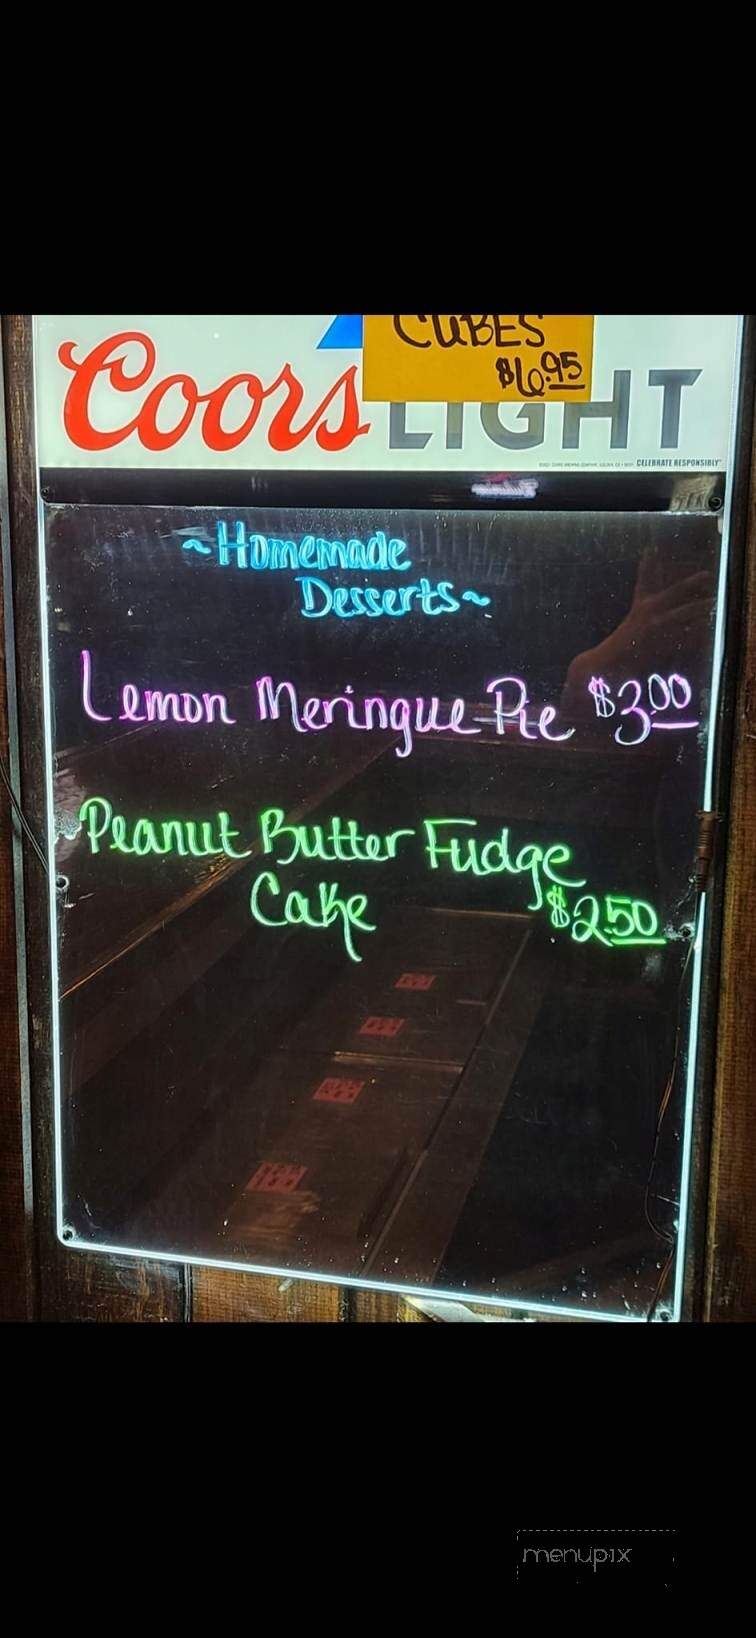 CUBES
$6.95
Coors LIGHT
CELEBRATE RESPONSIBLY
~Homemade
Desserts~
Lemon Meringue Pie $3.00
Peanut Butter Fudge
Cake $2.50
menupix